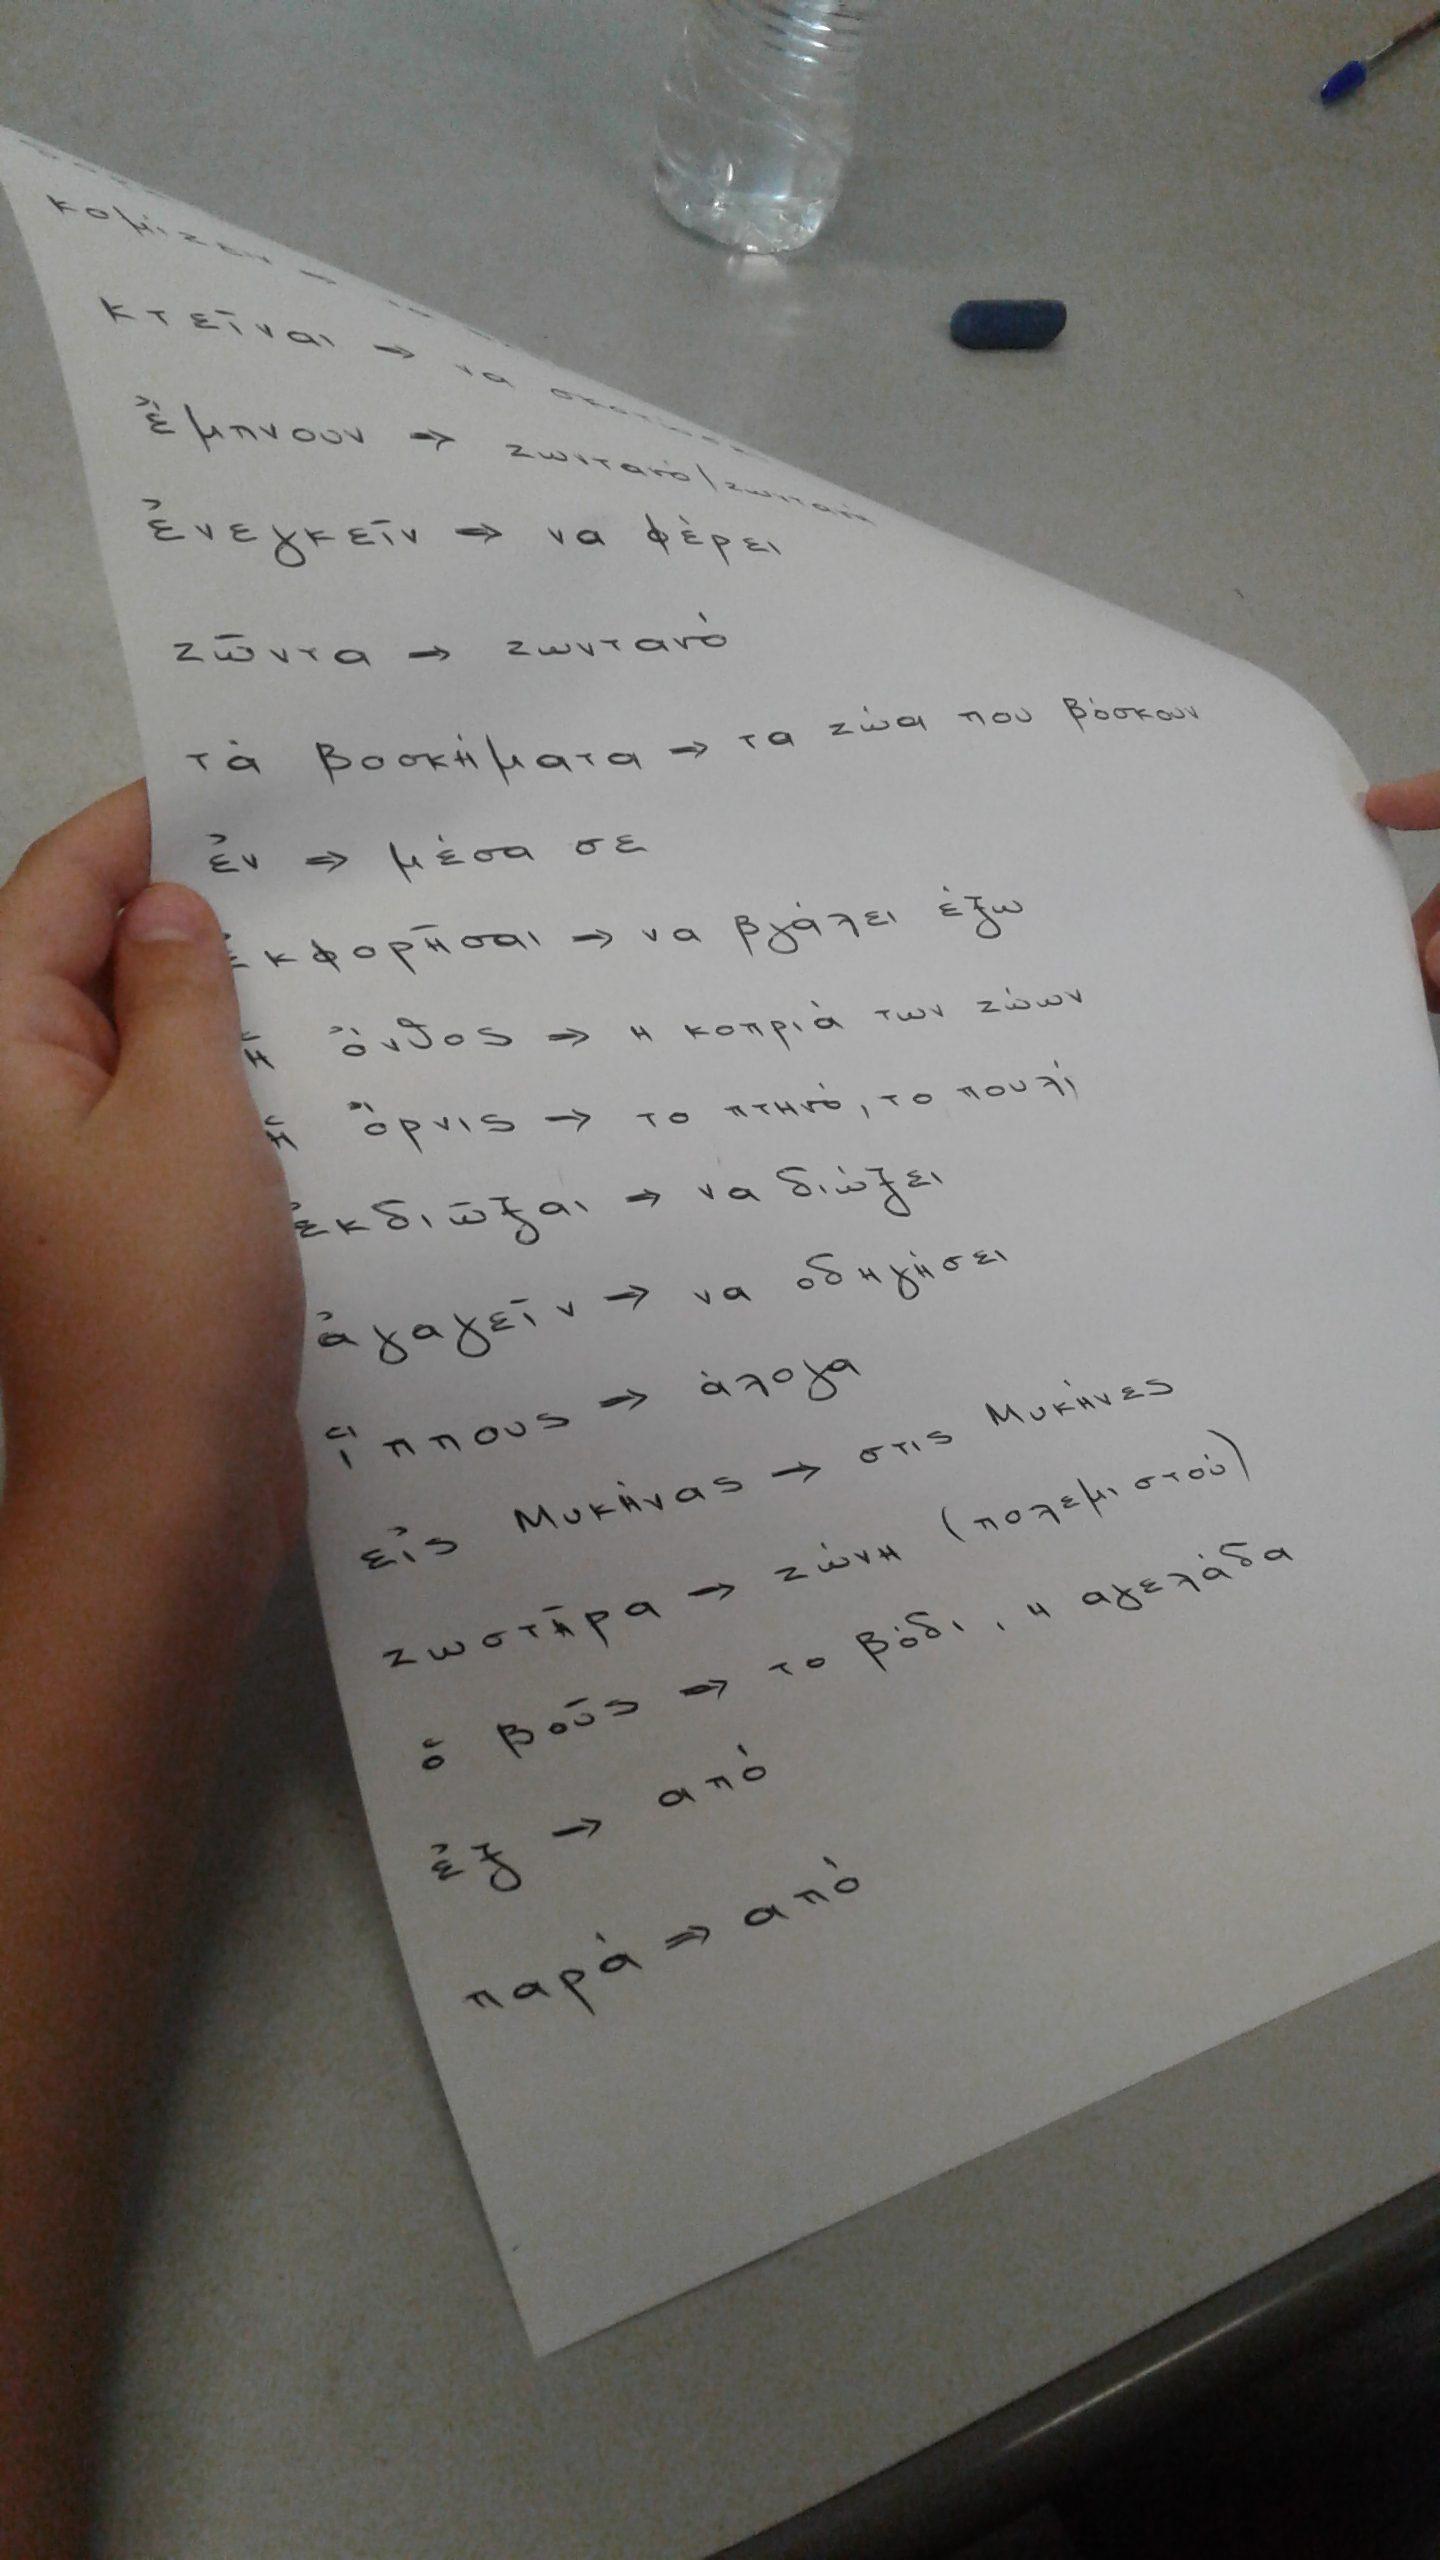 κομίζειν →
κτεῖναι → να
ἔμπνουν → ζωντανό/ζωντανή
ἐνεγκεῖν → να φέρει
ζῶντα → ζωντανό
τά βοσκήματα → τα ζώα που βόσκουν
ἐν → μέσα σε
ἐκφορῆσαι → να βγάλει έξω
ἡ ὄνθος → η κοπριά των ζώων
ἡ ὄρνις → το πτηνό, το πουλί
ἐκδιῶξαι → να διώξει
ἀγαγεῖν → να οδηγήσει
ἵππους → άλογα
εἰς Μυκήνας → στις Μυκήνες
ζωστῆρα → ζώνη (πολεμιστού)
ὁ βοῦς → το βόδι, η αγελάδα
ἐξ → από
παρά → από